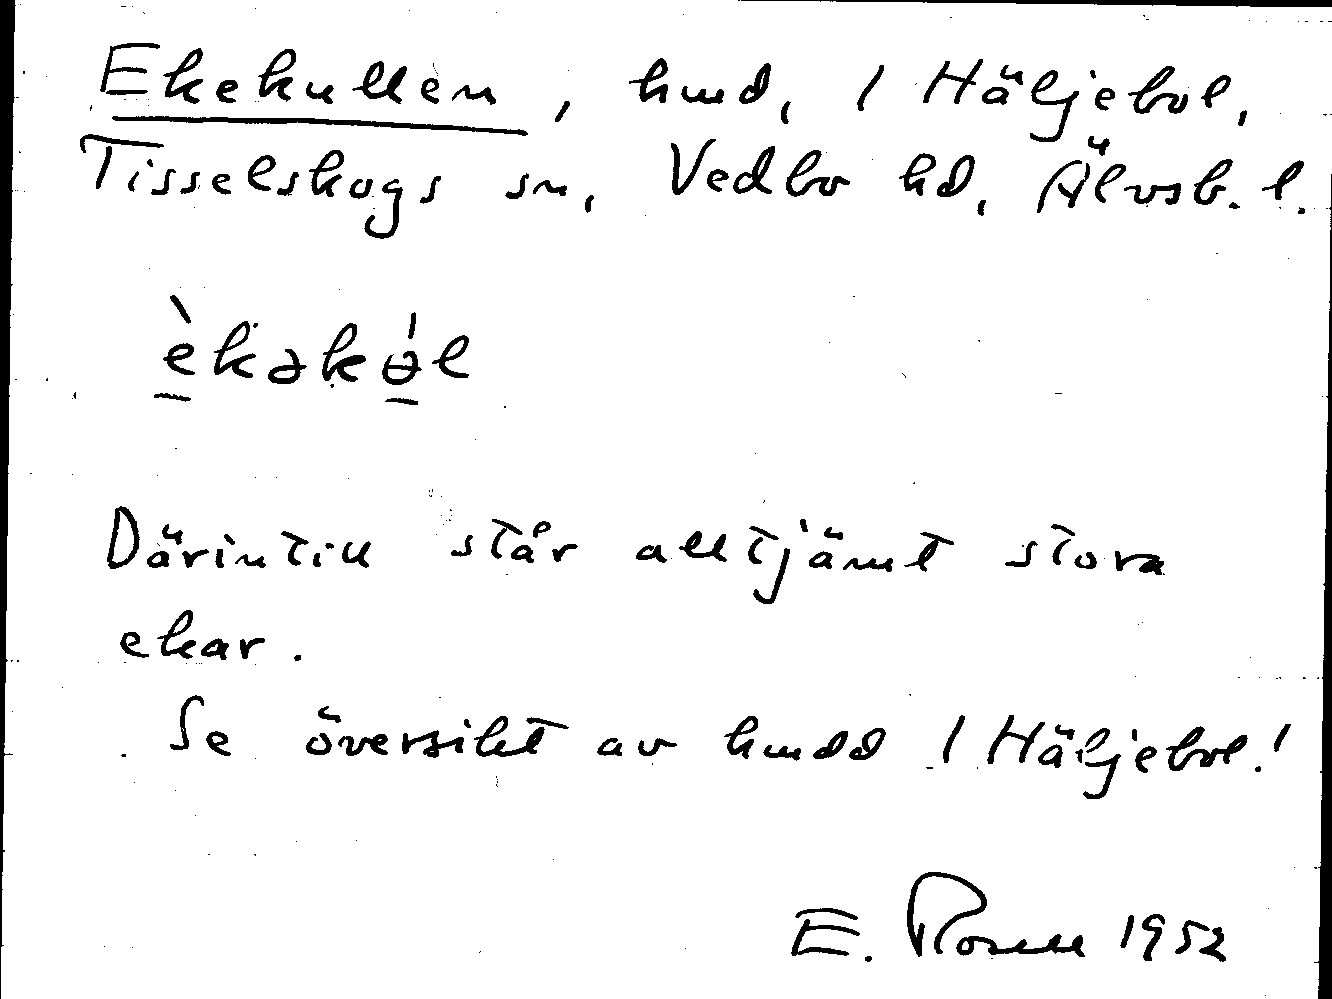 Ekekullen, hmd, 1 Häljebol,
Tisselskogs sn, Vedbo hd, Älvsb. l.
èkəkɵ́l
Därintill står alltjämt stora
ekar.
Se översikt av hmdd 1 Häljebol!
E. Rosell 1952